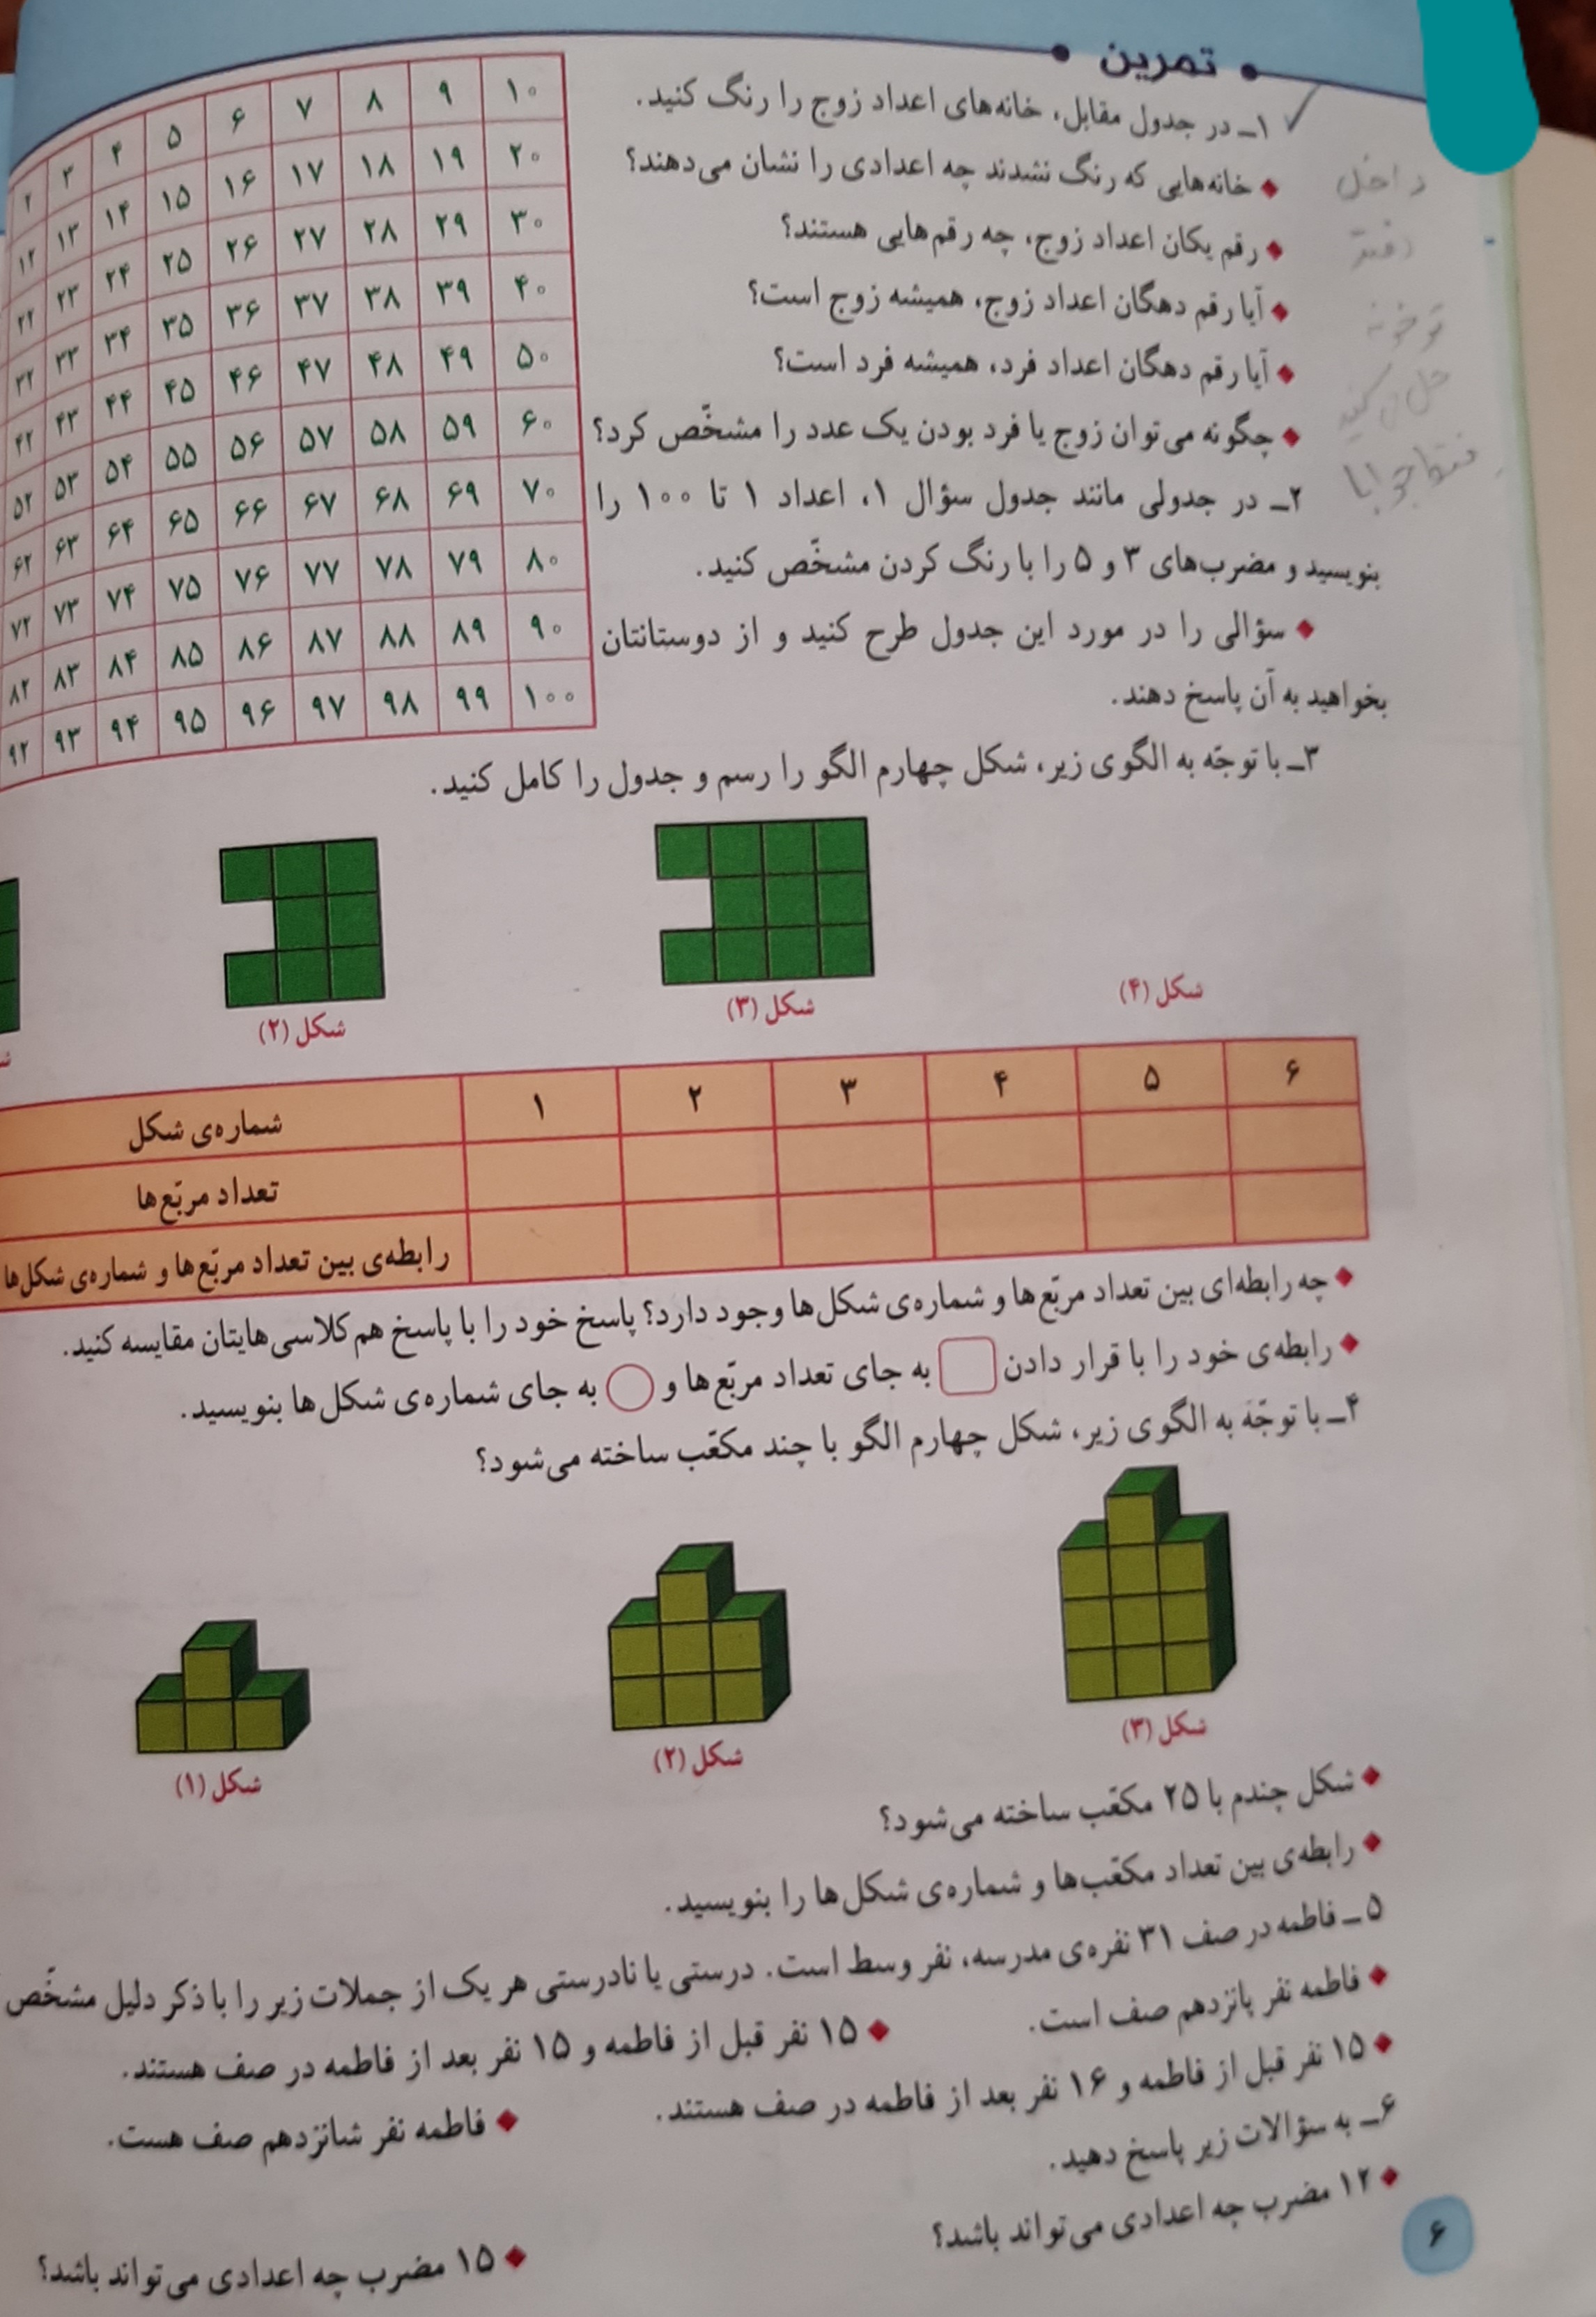 تمرین
۱ـ در جدول مقابل، خانه‌های اعداد زوج را رنگ کنید.
◆ خانه‌هایی که رنگ نشدند چه اعدادی را نشان می‌دهند؟
◆ رقم یکان اعداد زوج، چه رقم‌هایی هستند؟
◆ آیا رقم دهگان اعداد زوج، همیشه زوج است؟
◆ آیا رقم دهگان اعداد فرد، همیشه فرد است؟
◆ چگونه می‌توان زوج یا فرد بودن یک عدد را مشخّص کرد؟
داخل
دفتر
تو خونه
حل
۲ ۳ ۴ ۵ ۶ ۷ ۸ ۹ ۱۰
۱۲ ۱۳ ۱۴ ۱۵ ۱۶ ۱۷ ۱۸ ۱۹ ۲۰
۲۲ ۲۳ ۲۴ ۲۵ ۲۶ ۲۷ ۲۸ ۲۹ ۳۰
۳۲ ۳۳ ۳۴ ۳۵ ۳۶ ۳۷ ۳۸ ۳۹ ۴۰
۴۲ ۴۳ ۴۴ ۴۵ ۴۶ ۴۷ ۴۸ ۴۹ ۵۰
۵۲ ۵۳ ۵۴ ۵۵ ۵۶ ۵۷ ۵۸ ۵۹ ۶۰
۶۲ ۶۳ ۶۴ ۶۵ ۶۶ ۶۷ ۶۸ ۶۹ ۷۰
۷۲ ۷۳ ۷۴ ۷۵ ۷۶ ۷۷ ۷۸ ۷۹ ۸۰
۸۲ ۸۳ ۸۴ ۸۵ ۸۶ ۸۷ ۸۸ ۸۹ ۹۰
۹۲ ۹۳ ۹۴ ۹۵ ۹۶ ۹۷ ۹۸ ۹۹ ۱۰۰
۲ـ در جدولی مانند جدول سؤال ۱، اعداد ۱ تا ۱۰۰ را
بنویسید و مضرب‌های ۳ و ۵ را با رنگ کردن مشخّص کنید.
◆ سؤالی را در مورد این جدول طرح کنید و از دوستانتان
بخواهید به آن پاسخ دهند.
۳ـ با توجّه به الگوی زیر، شکل چهارم الگو را رسم و جدول را کامل کنید.
شکل (۲) شکل (۳) شکل (۴)
شماره‌ی شکل ۱ ۲ ۳ ۴ ۵ ۶
تعداد مربّع‌ها
رابطه‌ی بین تعداد مربّع‌ها و شماره‌ی شکل‌ها
◆ چه رابطه‌ای بین تعداد مربّع‌ها و شماره‌ی شکل‌ها وجود دارد؟ پاسخ خود را با پاسخ هم‌کلاسی‌هایتان مقایسه کنید.
◆ رابطه‌ی خود را با قرار دادن □ به جای تعداد مربّع‌ها و ○ به جای شماره‌ی شکل‌ها بنویسید.
۴ـ با توجّه به الگوی زیر، شکل چهارم الگو با چند مکعّب ساخته می‌شود؟
شکل (۱) شکل (۲) شکل (۳)
◆ شکل چندم با ۲۵ مکعّب ساخته می‌شود؟
◆ رابطه‌ی بین تعداد مکعّب‌ها و شماره‌ی شکل‌ها را بنویسید.
۵ـ فاطمه در صف ۳۱ نفره‌ی مدرسه، نفر وسط است. درستی یا نادرستی هر یک از جملات زیر را با ذکر دلیل مشخّص
◆ فاطمه نفر پانزدهم صف است.
◆ ۱۵ نفر قبل از فاطمه و ۱۵ نفر بعد از فاطمه در صف هستند.
◆ ۱۵ نفر قبل از فاطمه و ۱۶ نفر بعد از فاطمه در صف هستند.
◆ فاطمه نفر شانزدهم صف هست.
۶ـ به سؤالات زیر پاسخ دهید.
◆ ۱۲ مضرب چه اعدادی می‌تواند باشد؟
◆ ۱۵ مضرب چه اعدادی می‌تواند باشد؟
۶